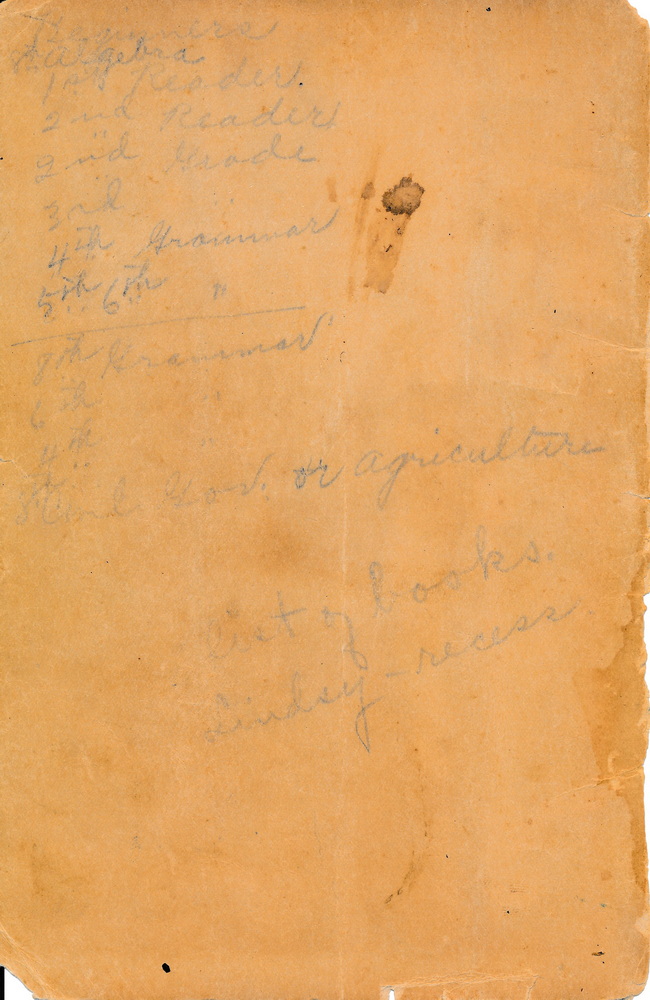 Beginners
& Algebra
1st Reader
2nd Reader
2nd Grade
3rd "
4th Grammar
5th 6th "
8th Grammar
6th "
4th "
Gov. or Agriculture
list of books.
Lindsy - recess.